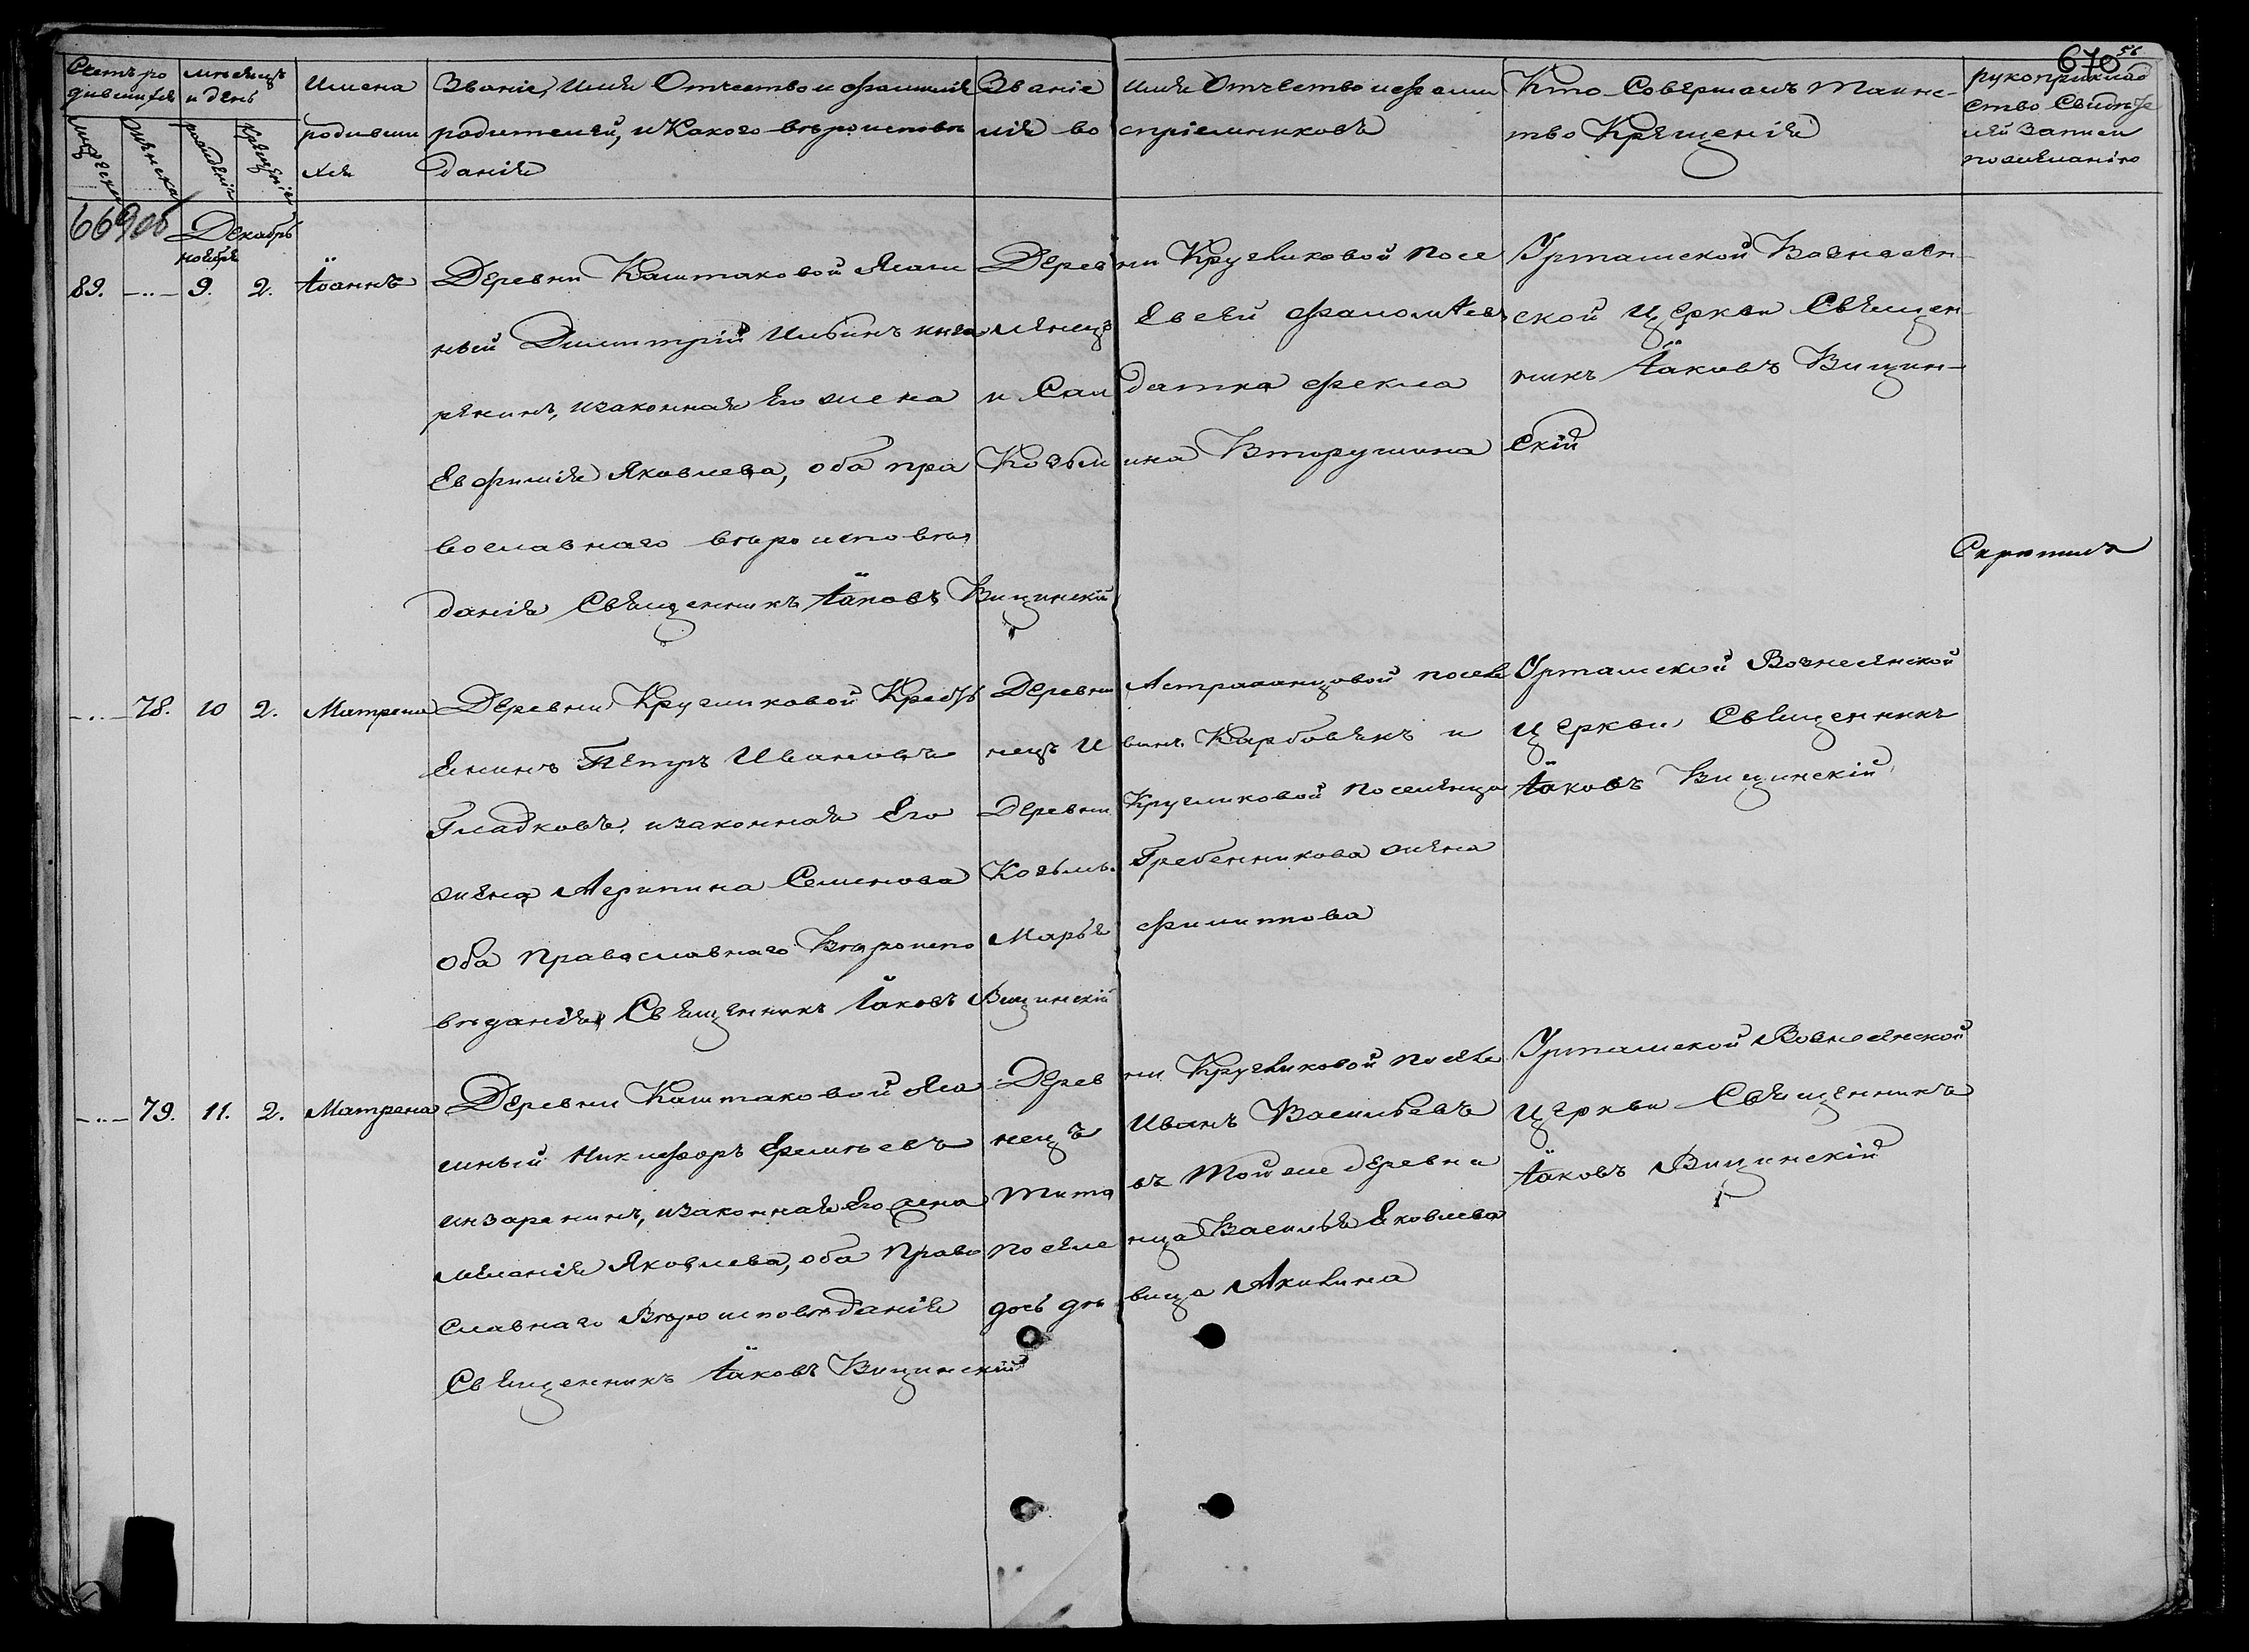 670 56
Счетъ родившихся
мѣсяцъ и день
Имена родившихся
Званіе, Имя Отчество и фамилія родителей, и Какого вѣроисповѣданія
Званіе имя Отчество и фамилія воспріемниковъ
Кто Совершалъ Таинство Крещенія
рукоприкладство Свидѣтелей записи по желанію
мужеска женска рожденія Крещенія
669 об
Декабрь
ноября
89. 9. 2. Іоаннъ
Деревни Каштаковой Ясаш
ный Димитрій Ильинъ инза
ренинъ, изаконная Его жена
Евфимія Яковлева, оба пра
вославнаго вѣроисповѣ
данія Священникъ Іаковъ Вицинскій
Деревни Кругликовой посе
ленецъ Евсей
и Салдатка Фекла
Козьмина Вторушина
Урташской Вознесен-
ской Церкви Священ-
никъ Іаковъ Вицин-
скій
78. 10 2. Матрена
Деревни Кругликовой Кресть
Енинъ Петръ Ивановъ
Гладковъ, изаконная Его
жена Агрипина Семенова
Оба Православнаго Вѣроиспо
вѣданія, Священникъ Іаковъ Вицинскій
Деревни посел
нецъ и
Деревни Кругликовой Поселенца
Козьмы Гребенникова жена
Марья Филиппова
Урташской Вознесенской
Церкви Священникъ
Іаковъ Вицинскій
79. 11. 2. Матрена
Деревни Каштаковой Яса
шный Никифоръ
инзаренинъ, изаконная Его жена
Меланія Яковлева, оба Право
Славнаго Вѣроисповѣданія
Священникъ Іаковъ Вицинскій
Деревни Кругликовой посел
нецъ Иванъ Васильевъ
Тито въ Той же деревни
поселенца Василья Яковлева
дочь дѣвица Акилина
Урташской Вознесенской
Церкви Священникъ
Іаковъ Вицинскій